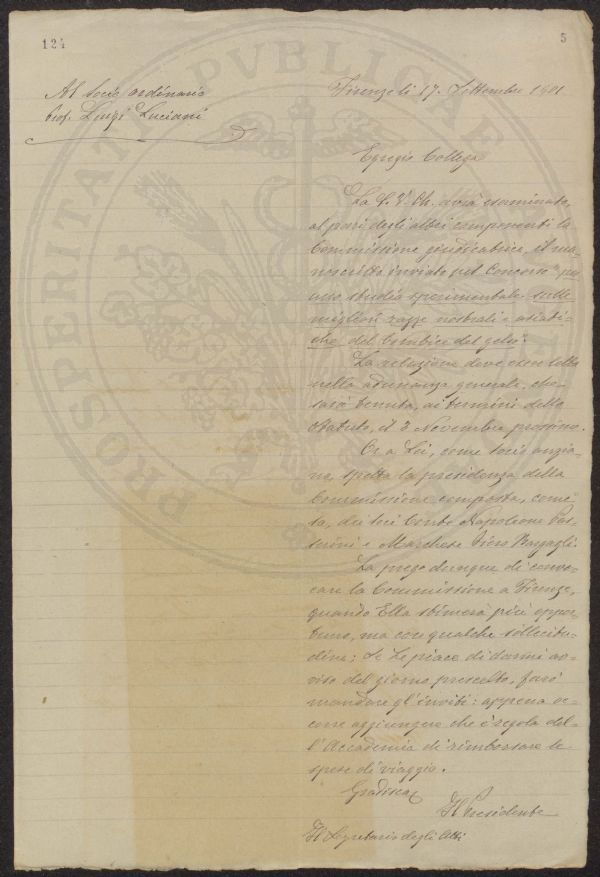 124
5
Al socio ordinario
prof. Luigi Luciani
Firenze li 17. Settembre 1901
Egregio Collega
La S. V. Ch. avrà esaminato,
al pari degli altri componenti la
Commissione giudicatrice, il ma-
noscritto inviato pel Concorso "per
uno studio sperimentale sulle
migliori razze nostrali e asiati-
che del bombice del gelso".
La relazione deve esser letta
nella adunanza generale, che
sarà tenuta, ai termini dello
Statuto, il 3 Novembre prossimo.
Or a Lei, come socio anzia-
no, spetta la presidenza della
Commissione composta, com'è
sa, dei soci Conte Napoleone Pas-
serini e Marchese Piero Bargagli.
La prego dunque di convo-
care la Commissione a Firenze,
quando Ella stimerà più oppor-
tuno, ma con qualche sollecitu-
dine; se Le piace di darmi av-
viso del giorno prescelto, farò
mandare gl'inviti: appena oc-
corre aggiungere che è regola del-
l'Accademia di rimborsare le
spese di viaggio.
Gradisca
Il Presidente
Il Segretario degli Atti
PROSPERITATI PVBLICAE